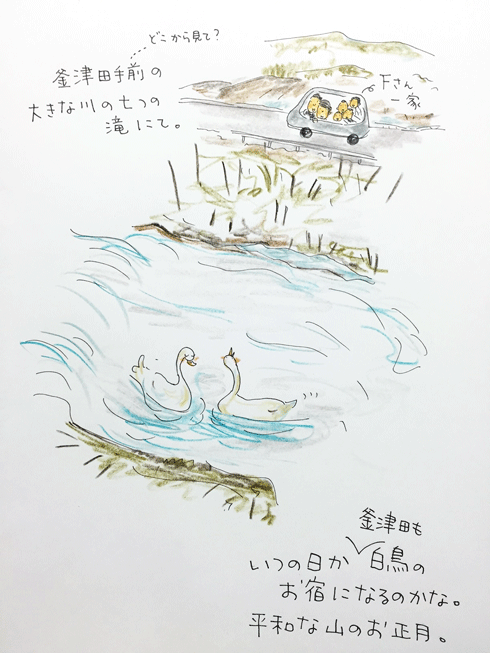 どこから見て?
釜津田手前の
大きな川の七つの
滝にて。
Fさん
一家
釜津田も
いつの日か白鳥の
お宿になるのかな。
平和な山のお正月。